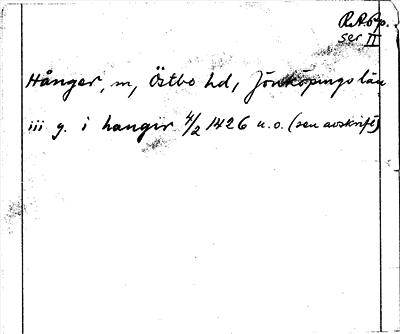 R.A.P.p.
ser II
Hånger, sn, Östbo hd, Jönköpings län
iii g. i hangir 4/2 1426 u.o. (sen avskrift)